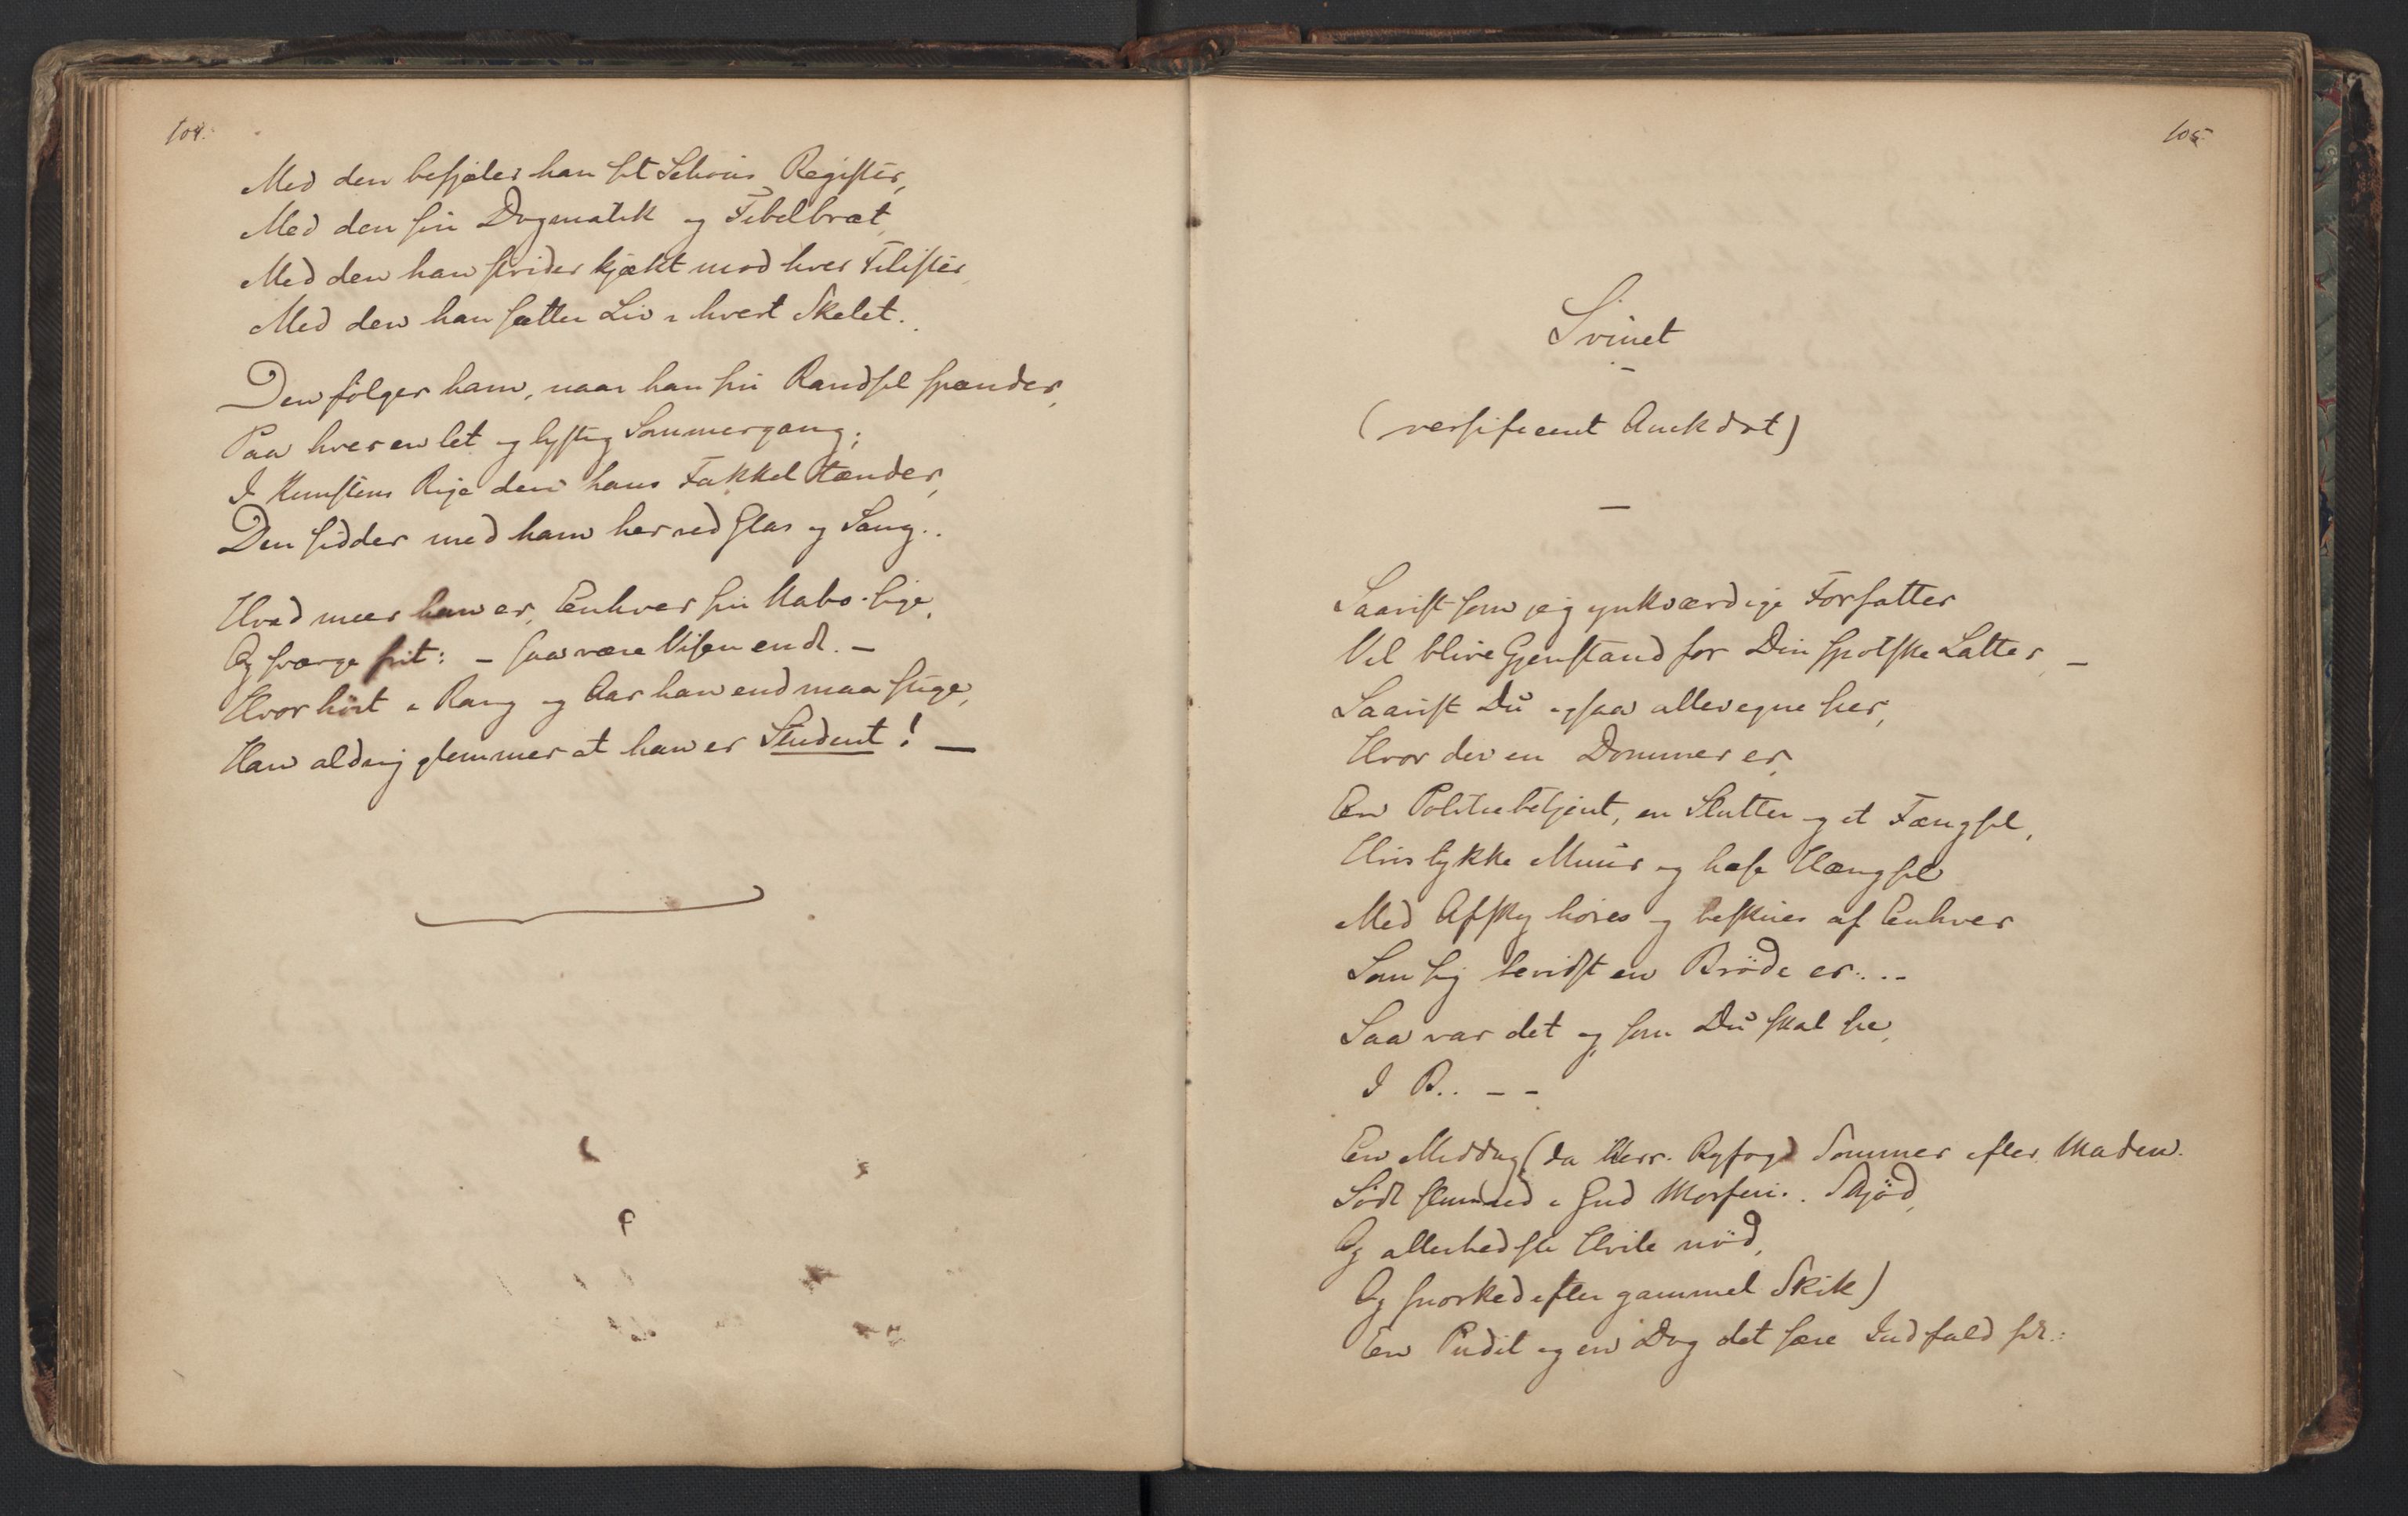 104.
Med den besjæler han sit Schous Register,
Med den sin Dogmatik og Fibelbræt,
Med den han strider kjækt mod hver Filister,
Med den han sætter Liv i hvert Skelet..
Den følger ham, naar han sin Randsel spænder,
Paa hver en let og lystig Sommergang;
I Kunstens Rige den hans Fakkel tænder,
Den sidder med ham her ved Glas og Sang..
Hvad meer han er, Enhver sin Nabo sige,
Og sværge frit: – saa være Visen endt. –
Hvor høit i Rang og Aar han end maa stige,
Han aldrig glemmer at han er Student! –
105
Svinet
(versificeret Anekdot)
–
Saavist som jeg ynkværdige Forfatter
Vil blive Gjenstand for Din spotske Latter, –
Saavist Du ogsaa allevegne seer,
Hvor der en Dommer er,
En Politiebetjent, en Slutter og et Fængsel,
Hvis tykke Muur og hæse Hængsel
Med Afsky høres og beskues af Enhver
Som sig bevidst en Brøde er....
Saa var det og, som Du skal see,
I B.. – –
En Middag (da Herr. Byfoged Sommer efter Maden.
Södt slumred i Gud Morfeus.. Skjöd,
Og allerbedste Hvile nöd,
Og snorked efter gammel Skik)
En Pudel og en Dog det sære Indfald fik: